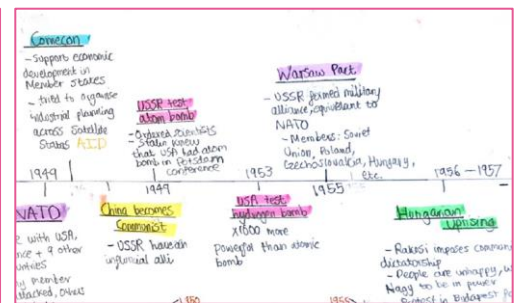 Comecon
- Support economic
development in
Member States
- tried to organise
industrial planning
across Satalide
States AID
USSR test
atom bomb
- Ordered scientists
- Stalin knew
that USA had atom
bomb in Potsdam
conference
Warsaw Pact
- USSR formed military
alliance, equivalent to
NATO
- Members: Soviet
Union, Poland,
Czechoslovakia, Hungary,
etc.
1949
1949
1953
1955
1956-1957
NATO
with USA,
+ 9 other
member
attacked, others
China becomes
Communist
- USSR have an
influencial alli
USA test
hydrogen bomb
x1000 more
powerful than atomic
bomb
Hungarian
Uprising
- Rakosi imposes
dictatorship
- People are unhappy,
Nagy to be in power
in Budapest
1950